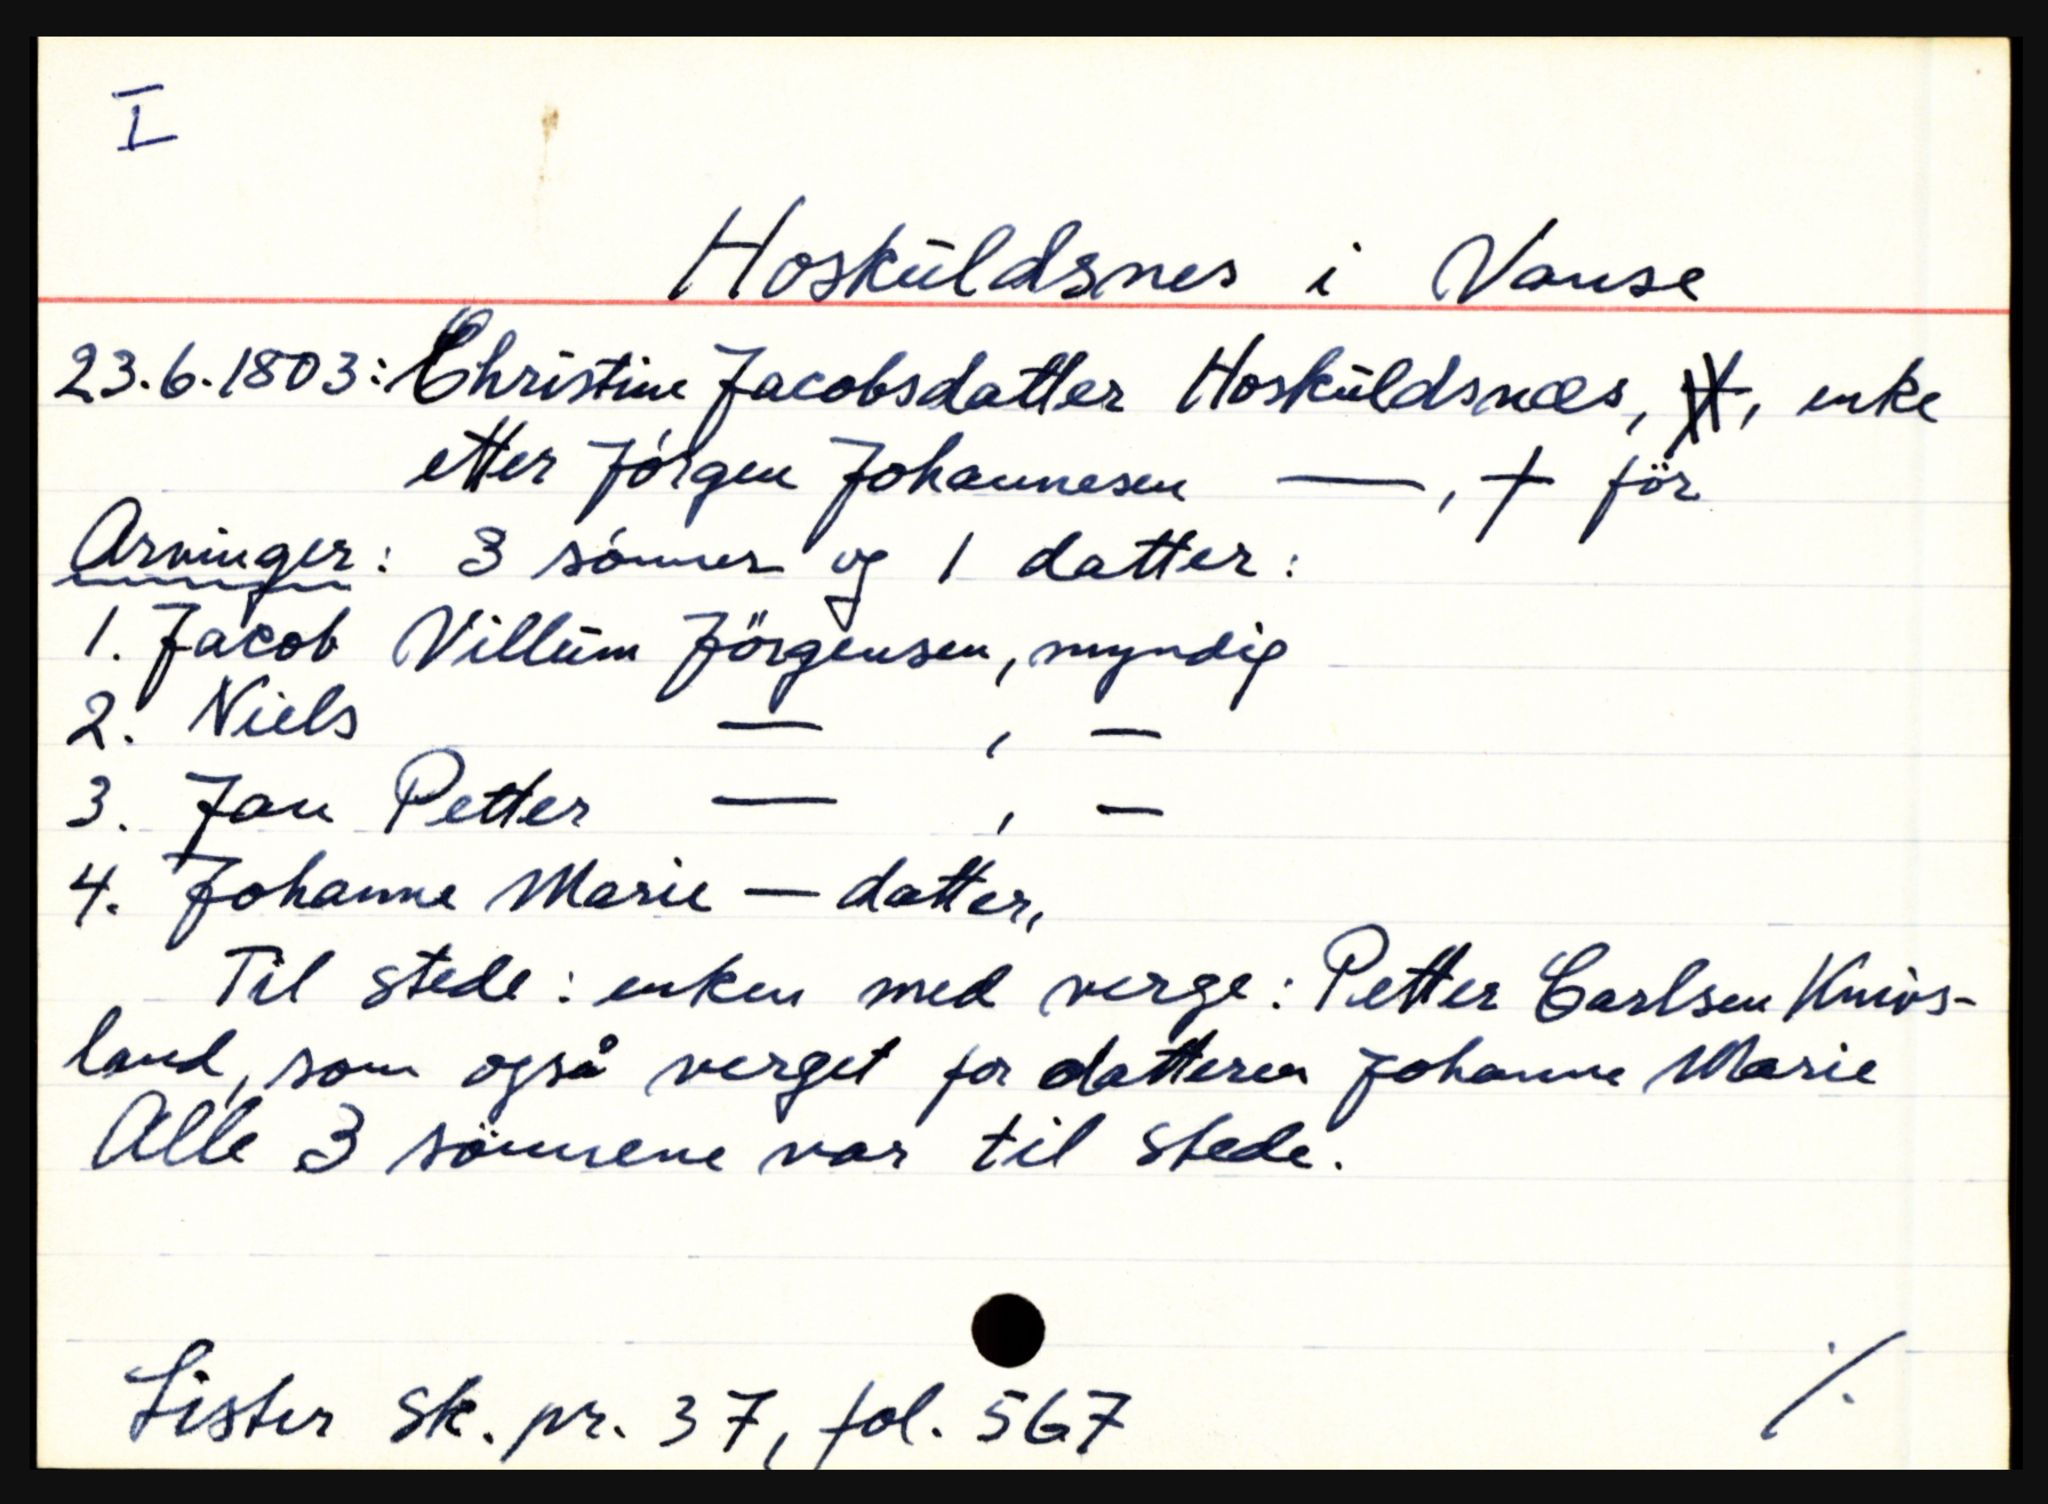 I
Hoskūldsnes i Vanse
23.6.1803: Christine Jacobsdatter Hoskūldsnæs, enke
etter Jórgen Johannesen —, † för
Arvinger: 3 sónner og 1 datter:
1. Jacob Villūm Jörgensen, myndig
2. Niels — , —
3. Jan Petter — , —
4. Johanne Marie — datter,
Til stede: enken med verge: Petter Carlsen Knivs-
land, som også verget for datteren Johanne Marie
Alle 3 sönnene var til stede.
Lister sk. pr. 37, fol. 567
./.